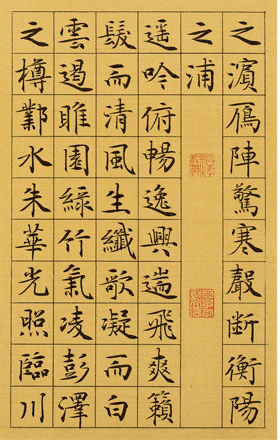 之濱鴈陣驚寒聲断衡陽
之浦
遥吟俯暢逸興遄飛爽籟
髮而清風生纖歌凝而白
雲遏睢園緑竹氣凌彭澤
之樽鄴水朱華光照臨川